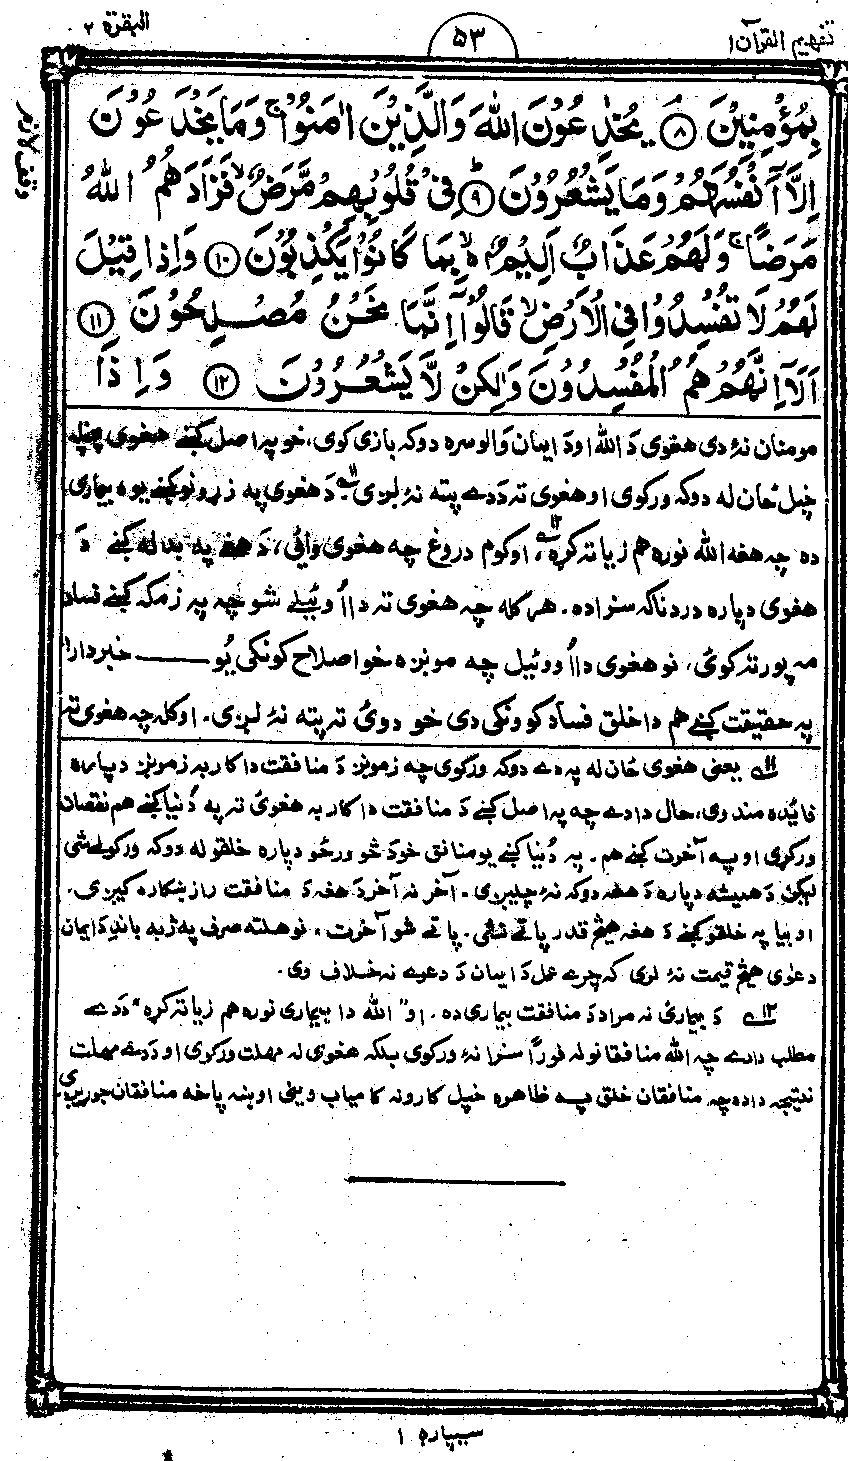 تفهيم القرآن ١
٥٣
البقرة ٢
بِمُؤْمِنِيْنَ ۘ ﴿٨﴾ يُخٰدِعُوْنَ اللّٰهَ وَالَّذِيْنَ اٰمَنُوْا ۚ وَمَا يَخْدَعُوْنَ
وقف لازم
اِلَّآ اَنْفُسَهُمْ وَمَا يَشْعُرُوْنَ ؕ ﴿٩﴾ فِيْ قُلُوْبِهِمْ مَّرَضٌ ۙ فَزَادَهُمُ اللّٰهُ
مَرَضًا ۚ وَلَهُمْ عَذَابٌ اَلِيْمٌۢ ۙ۬ بِمَا كَانُوْا يَكْذِبُوْنَ ﴿١٠﴾ وَاِذَا قِيْلَ
لَهُمْ لَا تُفْسِدُوْا فِي الْاَرْضِ ۙ قَالُوْٓا اِنَّمَا نَحْنُ مُصْلِحُوْنَ ﴿١١﴾
اَلَآ اِنَّهُمْ هُمُ الْمُفْسِدُوْنَ وَلٰكِنْ لَّا يَشْعُرُوْنَ ﴿١٢﴾ وَاِذَا
مومنان نۀ دی هغوی دَ الله او دَ ایمان والو سره دوکه بازی کوی، خو په اصل کښے هغوی پخپله
خپل ځان له دوکه ورکوی او هغوی ته دَ دے پته نۀ لری ۱۱؎ دَ هغوی په زړونو کښے یوه بیماری
ده چه هغه الله نوره هم زیاته کړه ۱۲؎، او کوم دروغ چه هغوی وائی، دَ هغے په بدله کښے دَ
هغوی دپاره دردناکه سزا ده. هر کله چه هغوی ته دا اُوئیلے شو چه په زمکه کښے فساد
مه پورته کوئ، نو هغوی دا اُووئیل چه مونږه خو اصلاح کونکی یُو ـــــ خبردار!
په حقیقت کښے هم دا خلق فساد کوونکی دی خو دوئ ته پته نۀ لری. او کله چه هغوی ته
۱۱؎ یعنی هغوی ځان له په دے دوکه ورکوی چه زمونږ دَ منافقت دا کار به زمونږ دپاره
فائده مند وی، حال دا دے چه په اصل کښے دَ منافقت دا کار به هغوی ته په دُنیا کښے هم نقصان
ورکړی او په آخرت کښے هم. په دُنیا کښے یو منافق خو دَ څو ورځو دپاره خلقو له دوکه ورکولے شی
لیکن دَ همیشه دپاره دَ هغه دوکه نۀ چلیږی. آخر نه آخر دَ هغه دَ منافقت راز ښکاره کیږی.
او بیا په خلقو کښے دَ هغه هیڅ قدر پاتے نشی. پاتے شو آخرت، نو هلته صرف په ژبه باندِ دَ ایمان
دعوٰی هیڅ قیمت نۀ لری که چرے عمل دَ ایمان دَ دعوے نه خلاف وی.
۱۲؎ دَ بیمارئ نه مراد دَ منافقت بیماری ده. او "الله دا بیماری نوره هم زیاته کړه" دَ دے
مطلب دا دے چه الله منافقانو له فوراً سزا نۀ ورکوی بلکه هغوی له مهلت ورکوی او دَ دے مهلت
نتیجه دا ده چه منافقان خلق په ظاهره خپل کارونه کامیاب وینی او ښه پاخه منافقان جوړیږی
سیپاره ۱